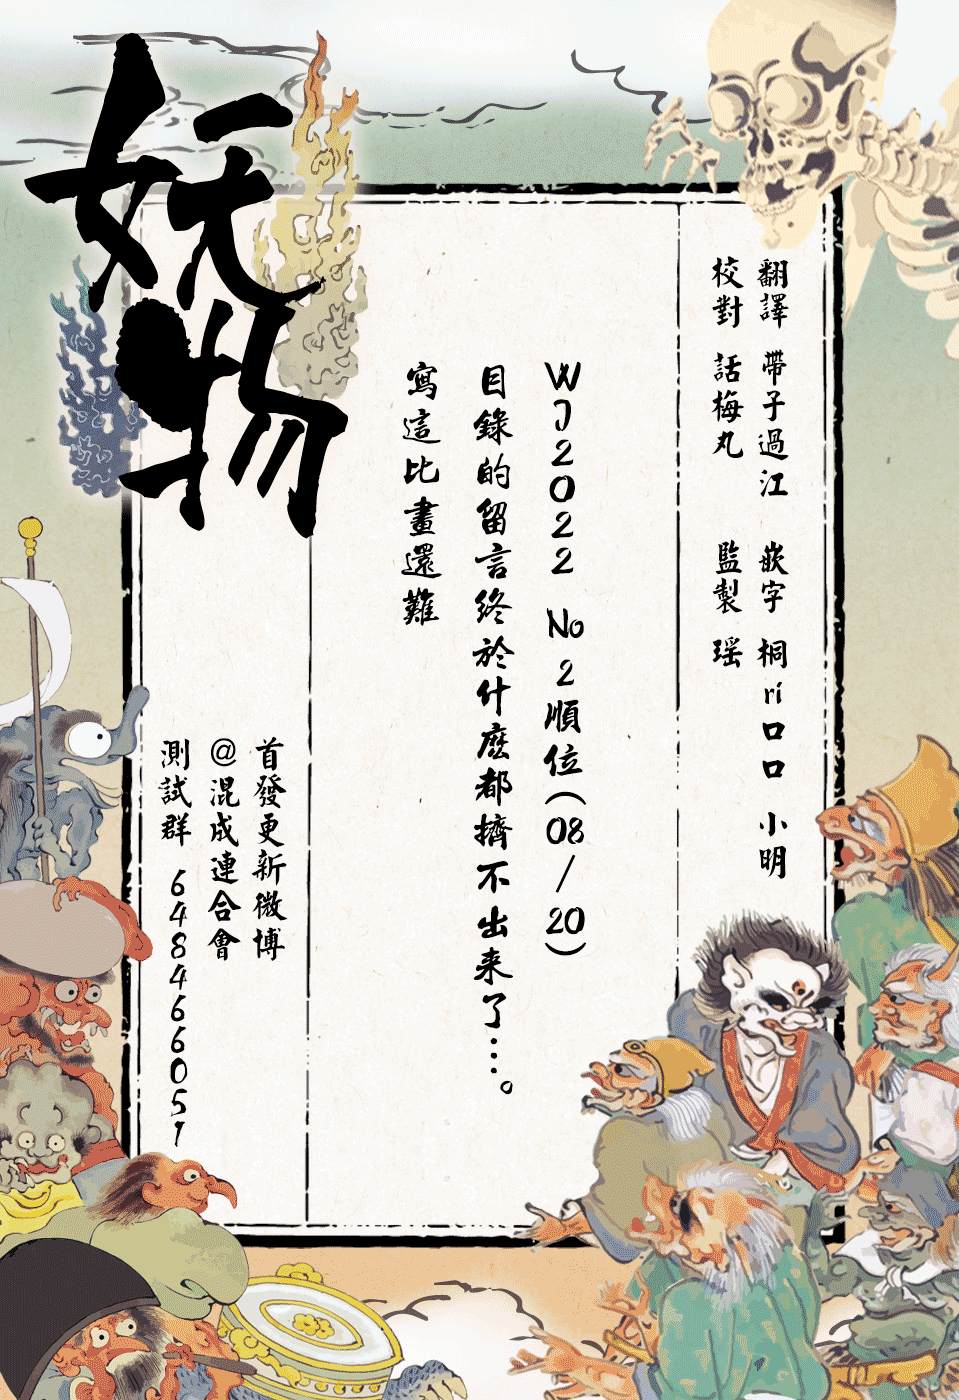 妖物
翻譯 帶子過江 嵌字 桐rí口口 小明
校對 話梅丸 監製 瑶
WJ2022 No2順位(08/20)
目錄的留言終於什麽都擠不出来了…。
寫這比畫還難
首發更新微博
@混成連合會
測試群 648466051